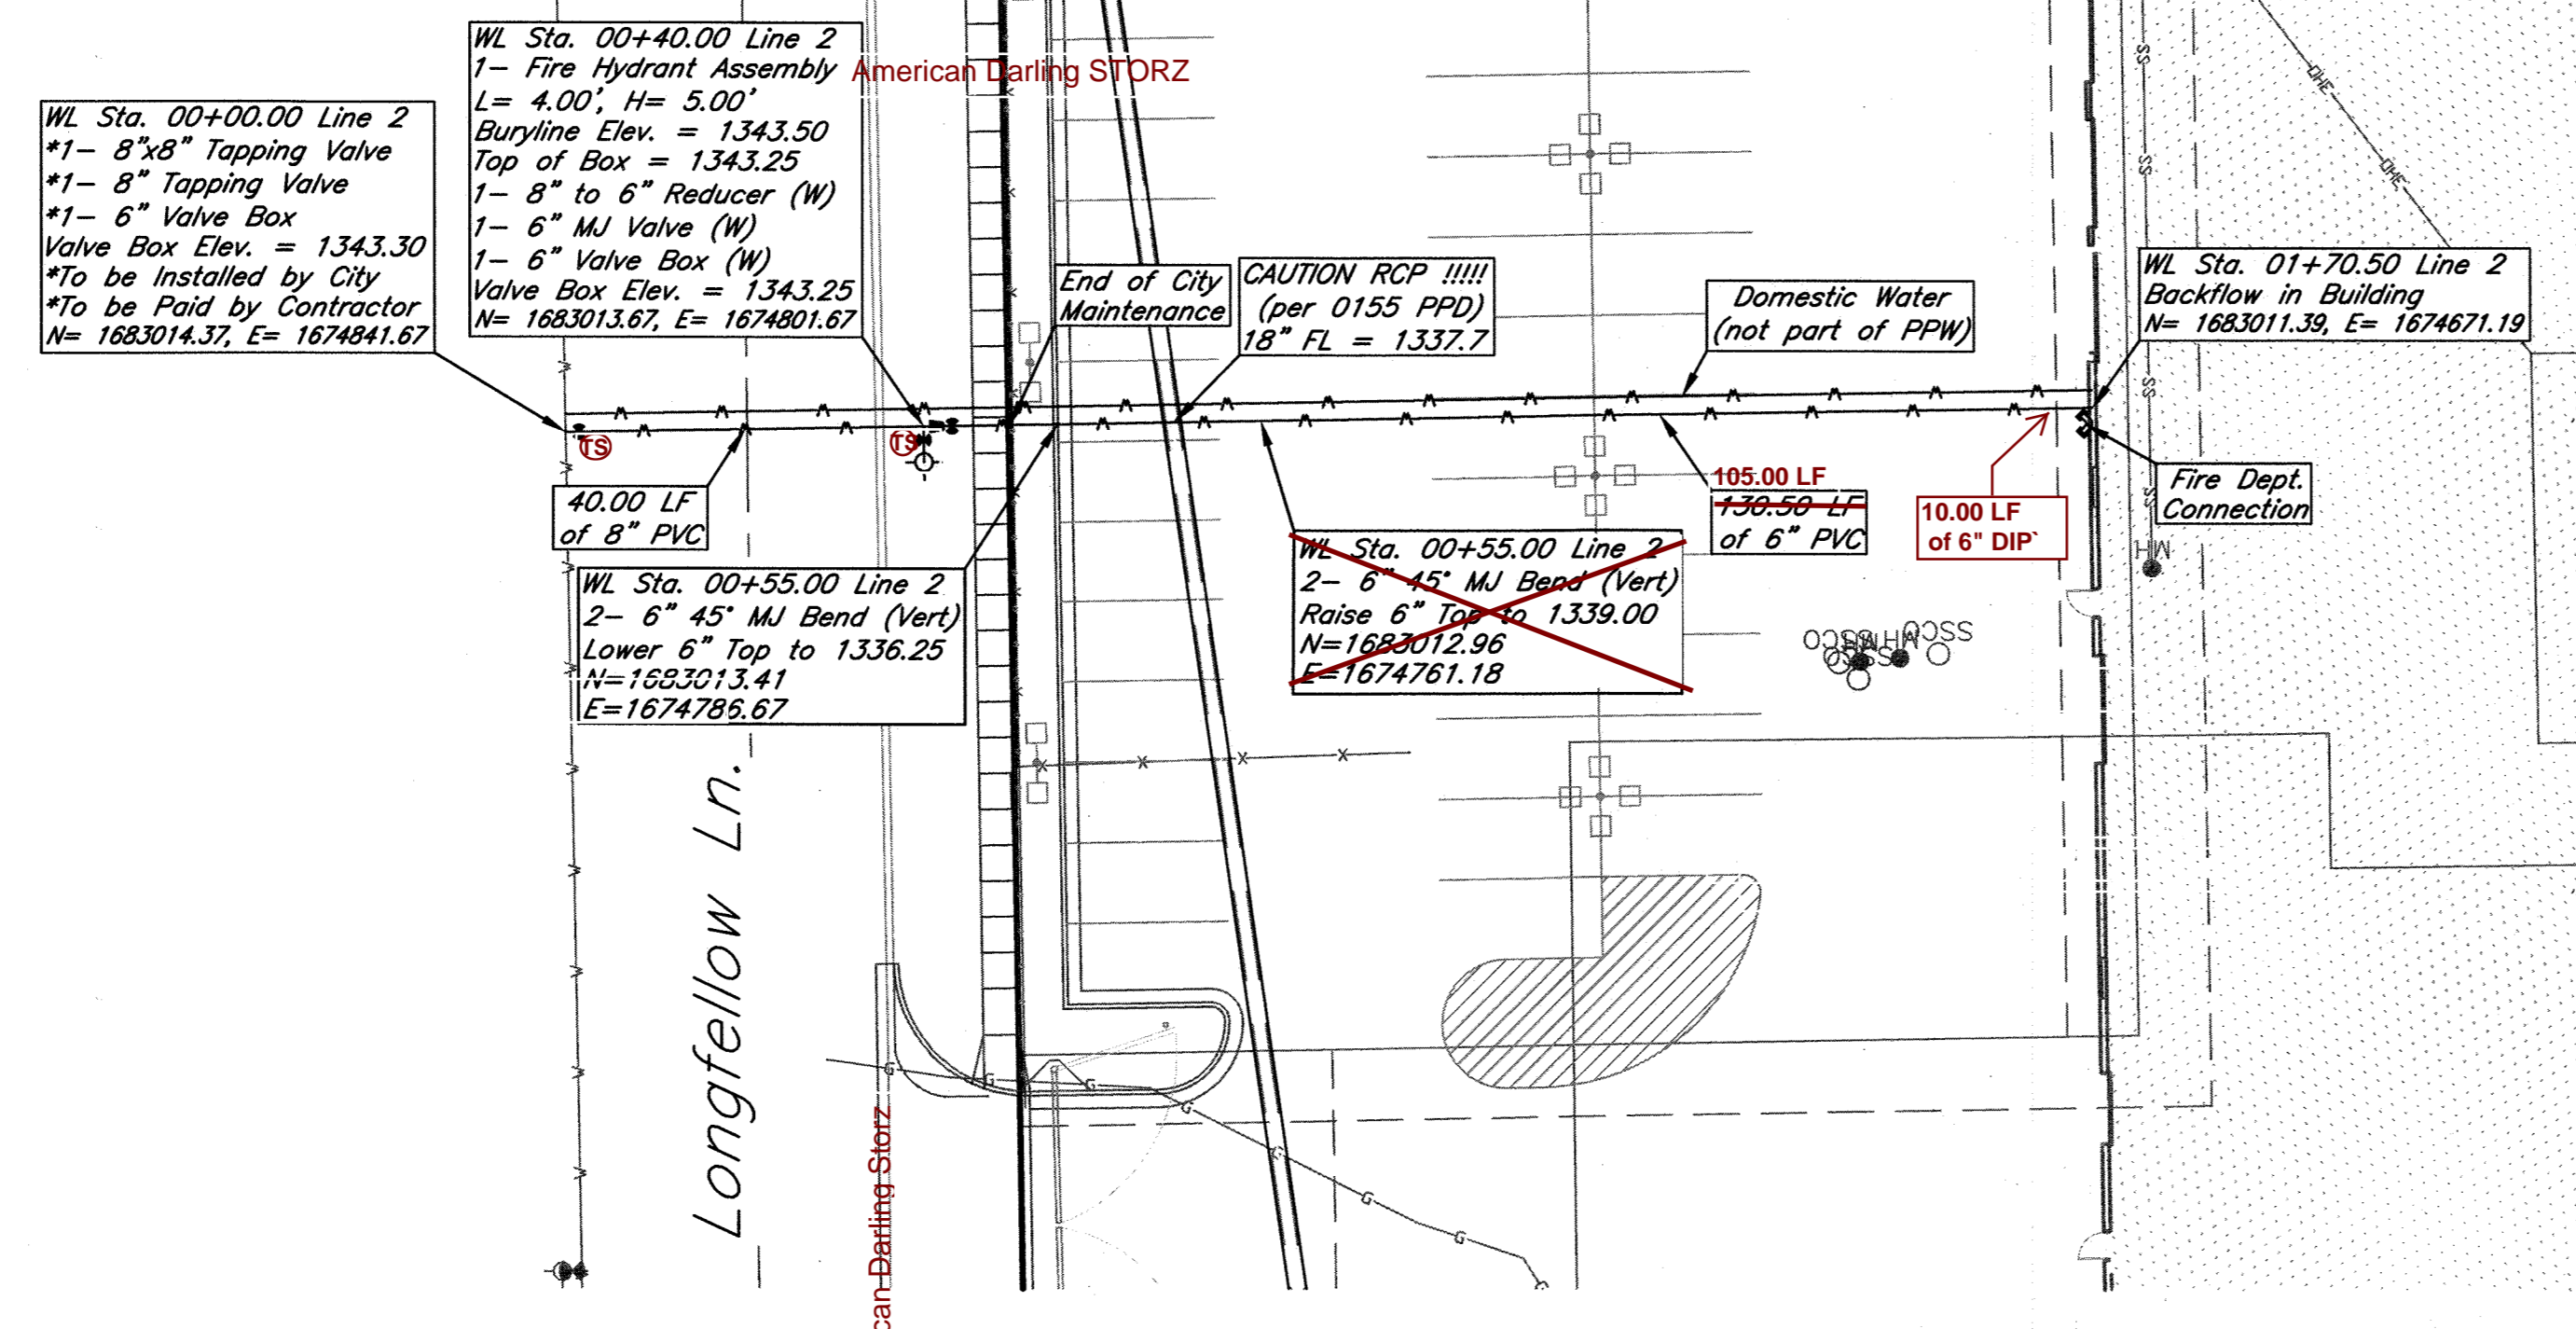 WL Sta. 00+00.00 Line 2
*1- 8"x8" Tapping Valve
*1- 8" Tapping Valve
*1- 6" Valve Box
Valve Box Elev. = 1343.30
*To be Installed by City
*To be Paid by Contractor
N= 1683014.37, E= 1674841.67
WL Sta. 00+40.00 Line 2
1- Fire Hydrant Assembly
L= 4.00', H= 5.00'
Buryline Elev. = 1343.50
Top of Box = 1343.25
1- 8" to 6" Reducer (W)
1- 6" MJ Valve (W)
1- 6" Valve Box (W)
Valve Box Elev. = 1343.25
N= 1683013.67, E= 1674801.67
American Darling STORZ
End of City
Maintenance
CAUTION RCP !!!!!
(per 0155 PPD)
18" FL = 1337.7
Domestic Water
(not part of PPW)
WL Sta. 01+70.50 Line 2
Backflow in Building
N= 1683011.39, E= 1674671.19
SS
SS
OHE
OHE
SS
SS
TS
TS
40.00 LF
of 8" PVC
WL Sta. 00+55.00 Line 2
2- 6" 45° MJ Bend (Vert)
Lower 6" Top to 1336.25
N=1683013.41
E=1674786.67
WL Sta. 00+55.00 Line 2
2- 6" 45° MJ Bend (Vert)
Raise 6" Top to 1339.00
N=1683012.96
E=1674761.18
105.00 LF
130.50 LF
of 6" PVC
10.00 LF
of 6" DIP`
Fire Dept.
Connection
MH
SSCO
X X X X
Longfellow Ln.
can Darling Storz
G G G G G G G